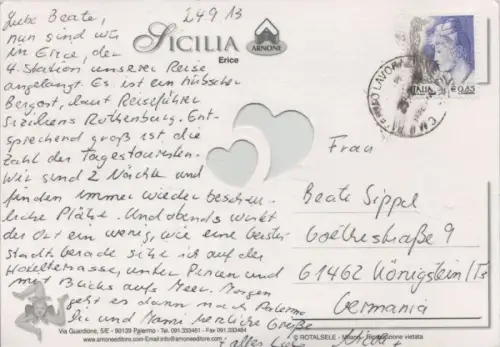 24.9.13
Liebe Beate,
nun sind wir
in Erice, der
4. Station unserer Reise
angelangt. Es ist ein hübscher
Bergort, laut Reiseführer
Siziliens Rothenburg. Ent-
sprechend groß ist die
Zahl der Tagestouristen.
Wir sind 2 Nächte und
finden immer wieder beschau-
liche Plätze. Und abends wirkt
der Ort ein wenig, wie eine Geister-
stadt. Gerade sitze ich auf der
Hotelterrasse, unter Pinien und
mit Blick aufs Meer. Morgen
geht es dann nach Palermo
Dir und Mami herzliche Grüße
+ alles Liebe
SICILIA
Erice
ARNONE
ITALIA € 0,65
LAVORAZIONE
Frau
Beate Sippel
Goethestraße 9
61462 Königstein/Ts
Germania
Via Guardione, 5/E - 90139 Palermo - Tel. 091.333461 - Fax 091.333484
www.arnoneeditore.com info@arnoneeditore.com
© ROTALSELE - Milano - Riproduzione vietata